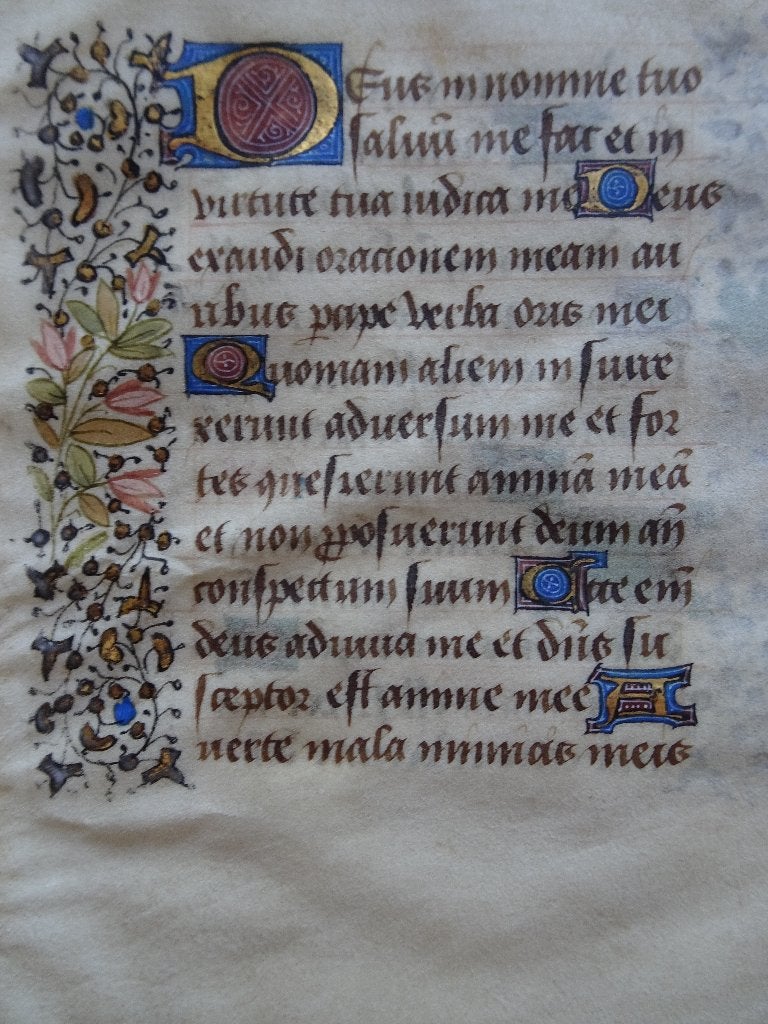 Deus in nomine tuo
salvū me fac et in
virtute tua iudica me Deus
exaudi oracionem meam au
ribus pcipe verba oris mei
Quoniam alieni insurre
xerunt adversum me et for
tes quesierunt animā meā
et non pposuerunt deum an̄
conspectum suum Ecce em̄
deus adiuva me et dn̄s su
sceptor est anime mee A
verte mala inimicis meis